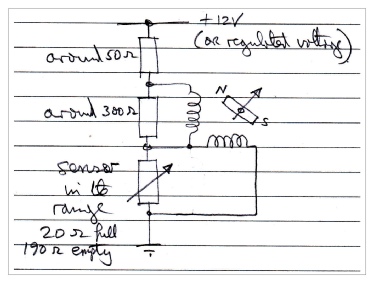 +12V
(or regulated voltage)
around 50Ω
around 300Ω
N
S
sensor
in its
range
20Ω full
190Ω empty